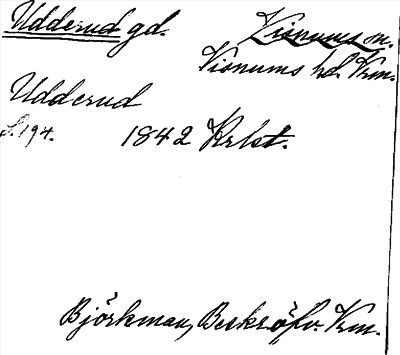 Udderud gd. Visnums sn.
Visnums hd. Vrm.
Udderud
S. 194. 1842 Krlst.
Björkman, Beskr. öfv. Vrm.